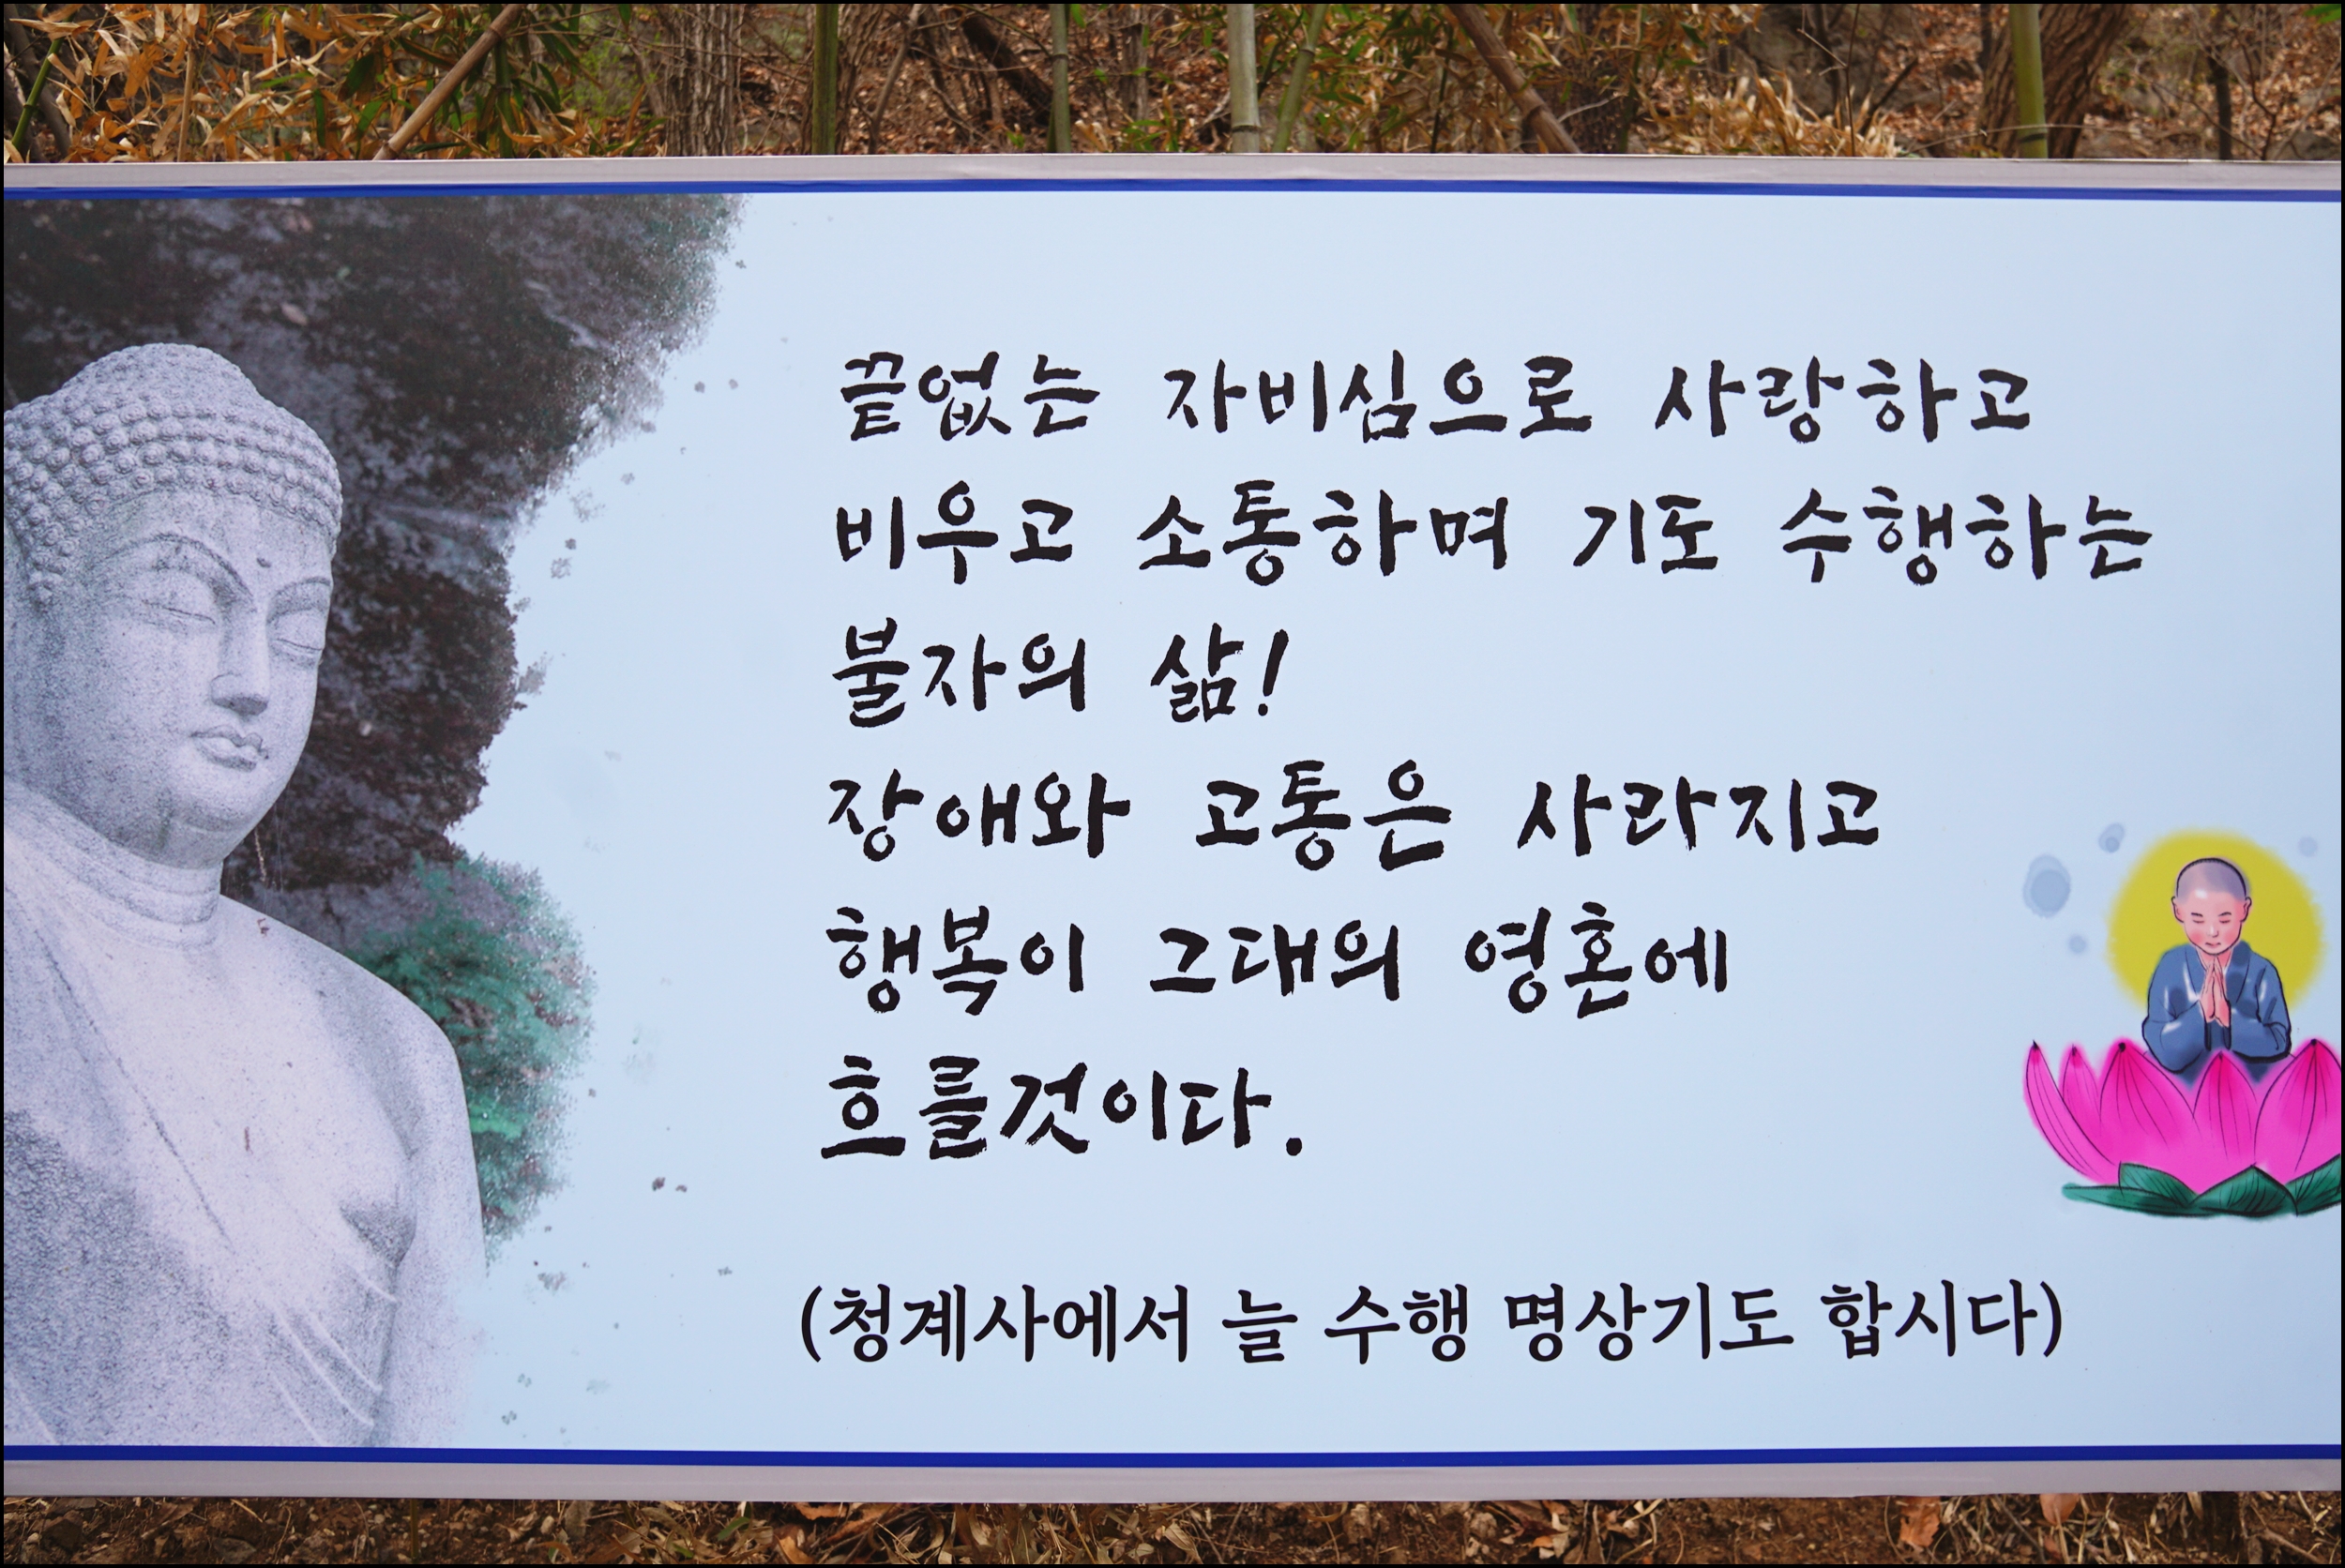 끝없는 자비심으로 사랑하고
비우고 소통하며 기도 수행하는
불자의 삶!
장애와 고통은 사라지고
행복이 그대의 영혼에
흐를것이다.
(청계사에서 늘 수행 명상기도 합시다)